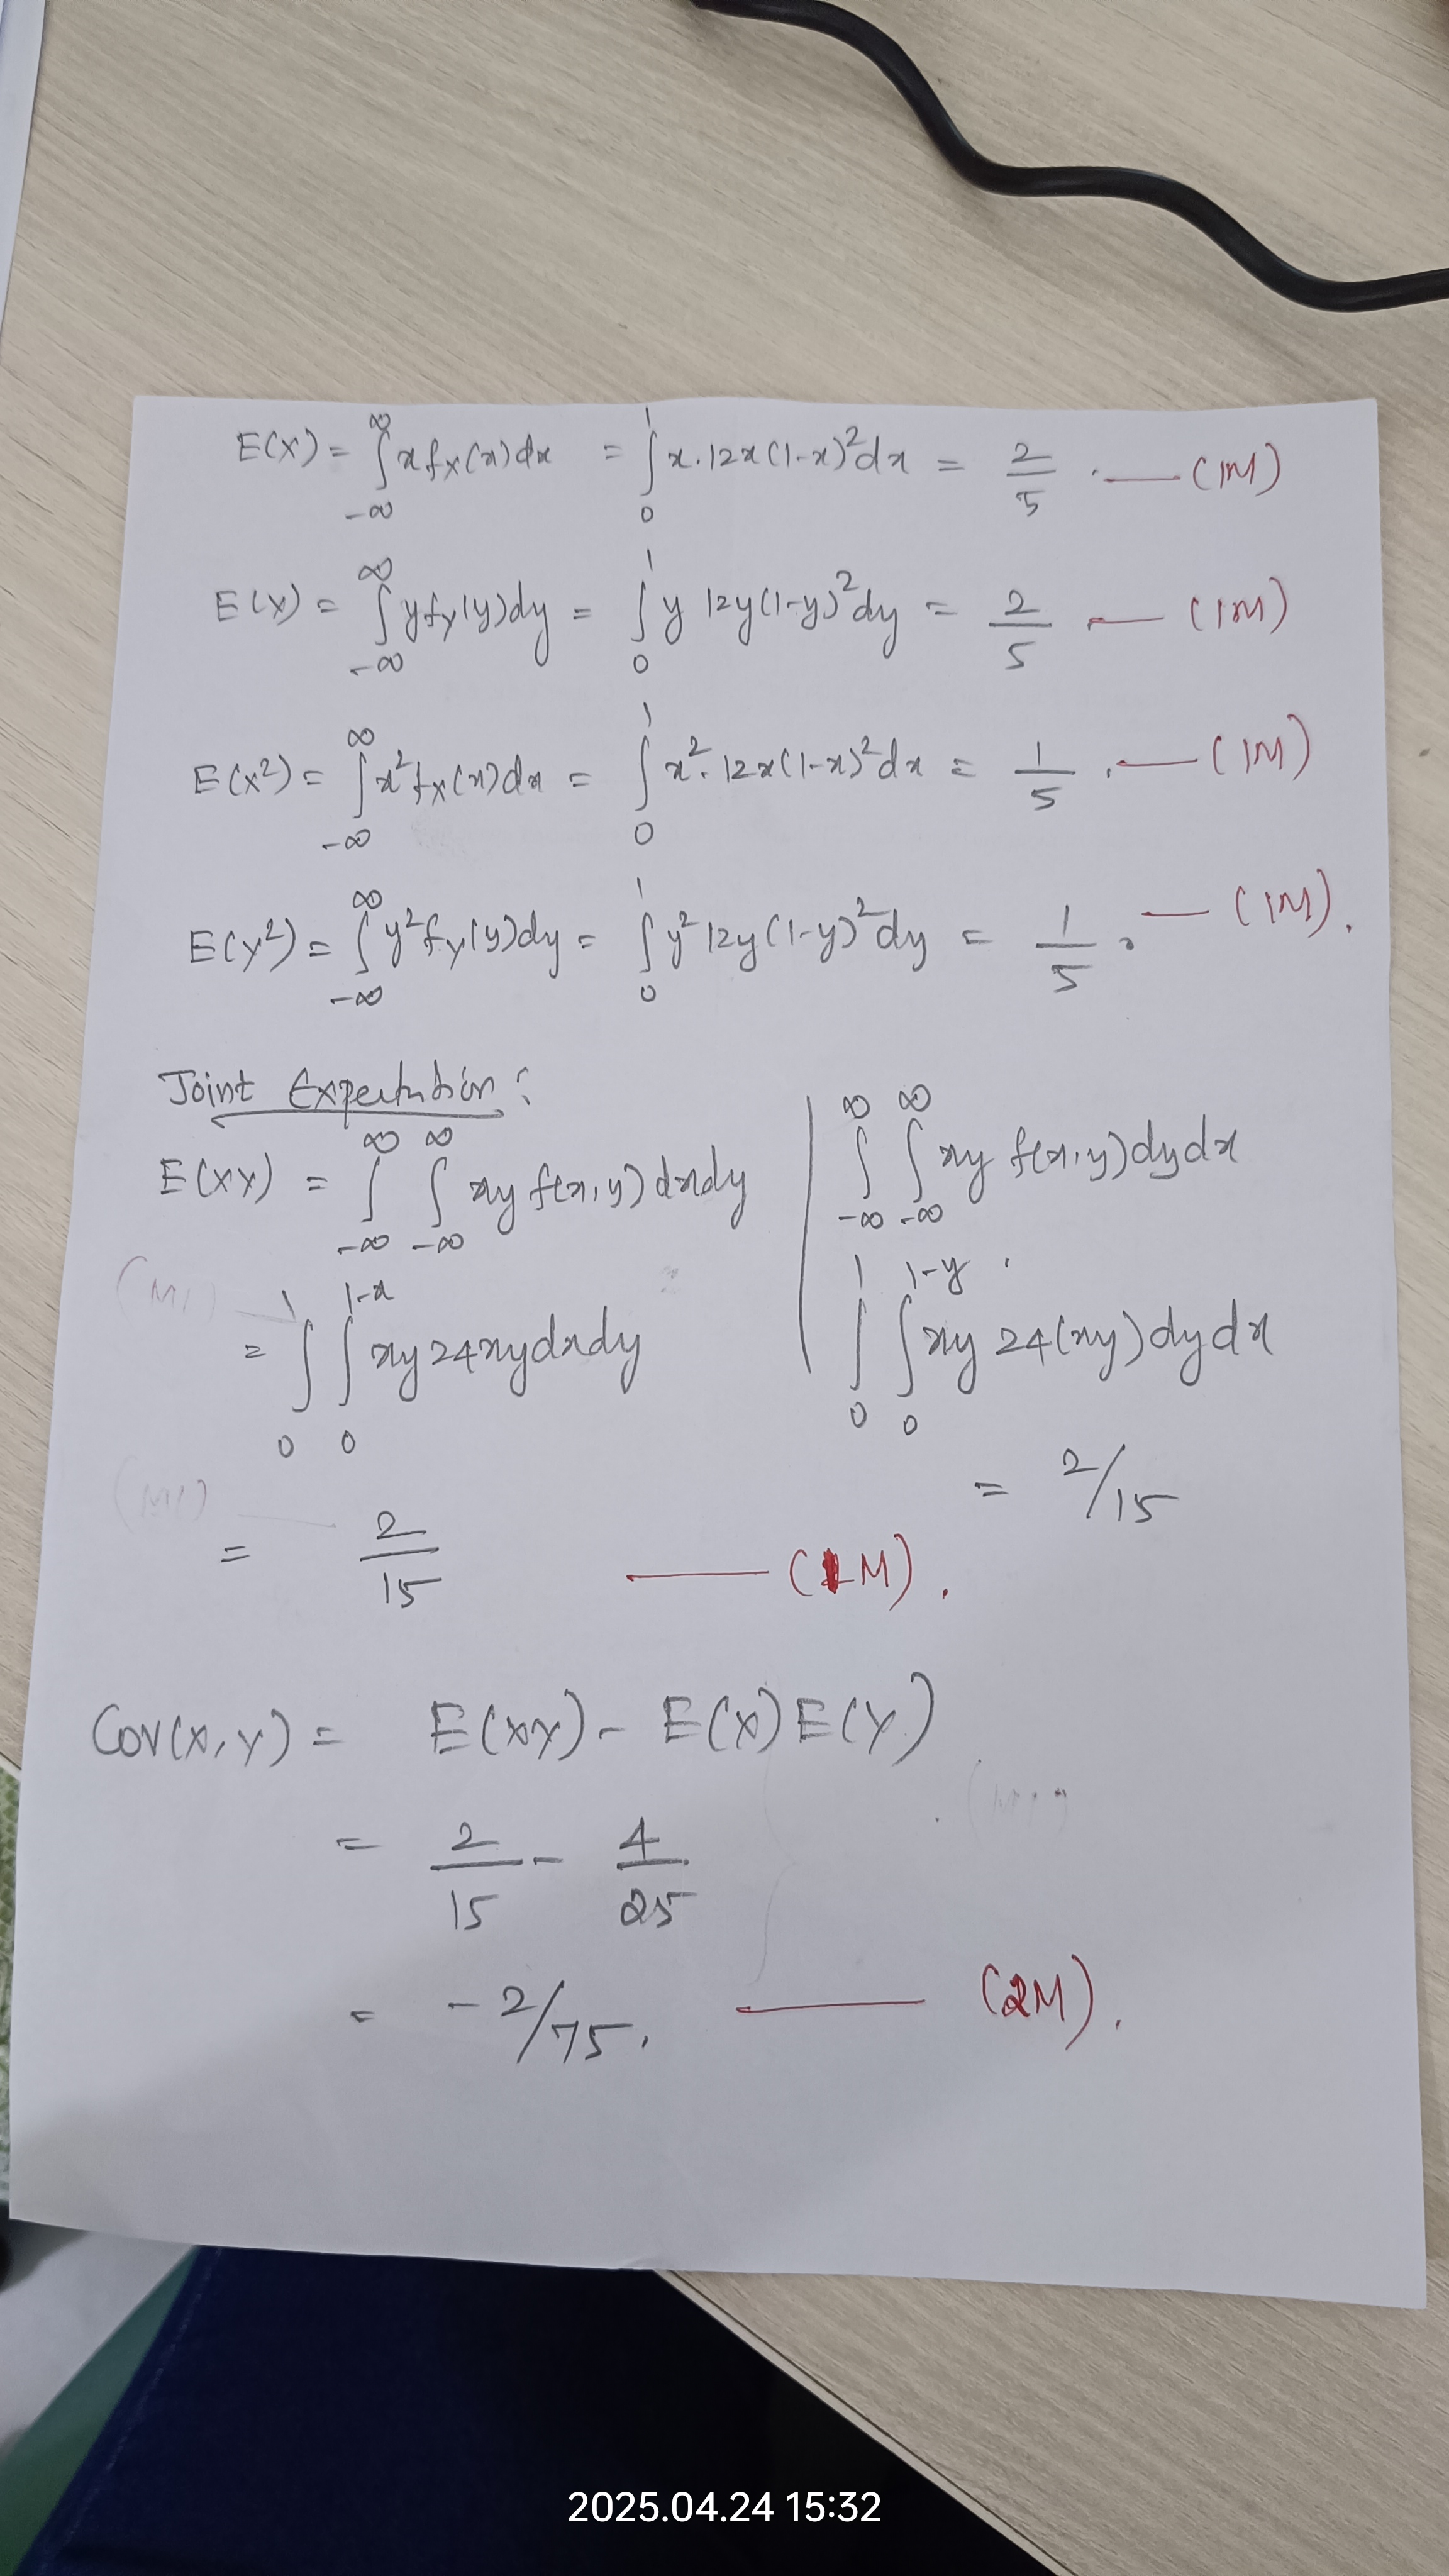 E(X) = ∫_{-∞}^{∞} x f_X(x) dx = ∫_0^1 x. 12x(1-x)^2 dx = 2/5 . — (1M)
E(X) = ∫_{-∞}^{∞} y f_Y(y) dy = ∫_0^1 y 12y(1-y)^2 dy = 2/5 — (1M)
E(X^2) = ∫_{-∞}^{∞} x^2 f_X(x) dx = ∫_0^1 x^2. 12x(1-x)^2 dx = 1/5 . — (1M)
E(Y^2) = ∫_{-∞}^{∞} y^2 f_Y(y) dy = ∫_0^1 y^2 12y(1-y)^2 dy = 1/5 . — (1M).
Joint Expectation:
E(XY) = ∫_{-∞}^{∞} ∫_{-∞}^{∞} xy f(x,y) dx dy
= ∫_0^1 ∫_0^{1-x} xy 24xy dx dy
= 2/15 — (1M).
∫_{-∞}^{∞} ∫_{-∞}^{∞} xy f(x,y) dy dx
∫_0^1 ∫_0^{1-y} xy 24(xy) dy dx
= 2/15
Cov(X,Y) = E(XY) - E(X) E(Y)
= 2/15 - 4/25
= -2/75. — (2M).
2025.04.24 15:32